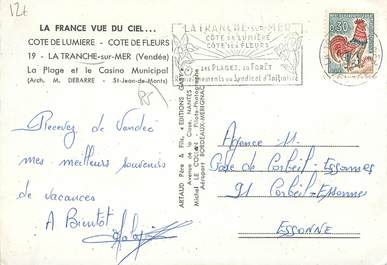 12t
LA FRANCE VUE DU CIEL...
COTE DE LUMIERE - COTE DE FLEURS
19 - LA TRANCHE-sur-MER (Vendée)
La Plage et le Casino Municipal
(Arch. M. DEBARRE - St-Jean-de-Monts)
LA TRANCHE-sur-MER
CÔTE DE LUMIÈRE
CÔTE DES FLEURS
SES PLAGES, SA FORÊT
au Syndicat d'Initiative
0,30
Recevez de Vendée
mes meilleurs souvenirs
de vacances
A Bientôt
ARTAUD Père & Fils, "EDITIONS GABY"
NANTES
Aéroport BORDEAUX-MERIGNAC
Agence 11
Gare de Corbeil-Essonnes
91 Corbeil-Essonnes
ESSONNE